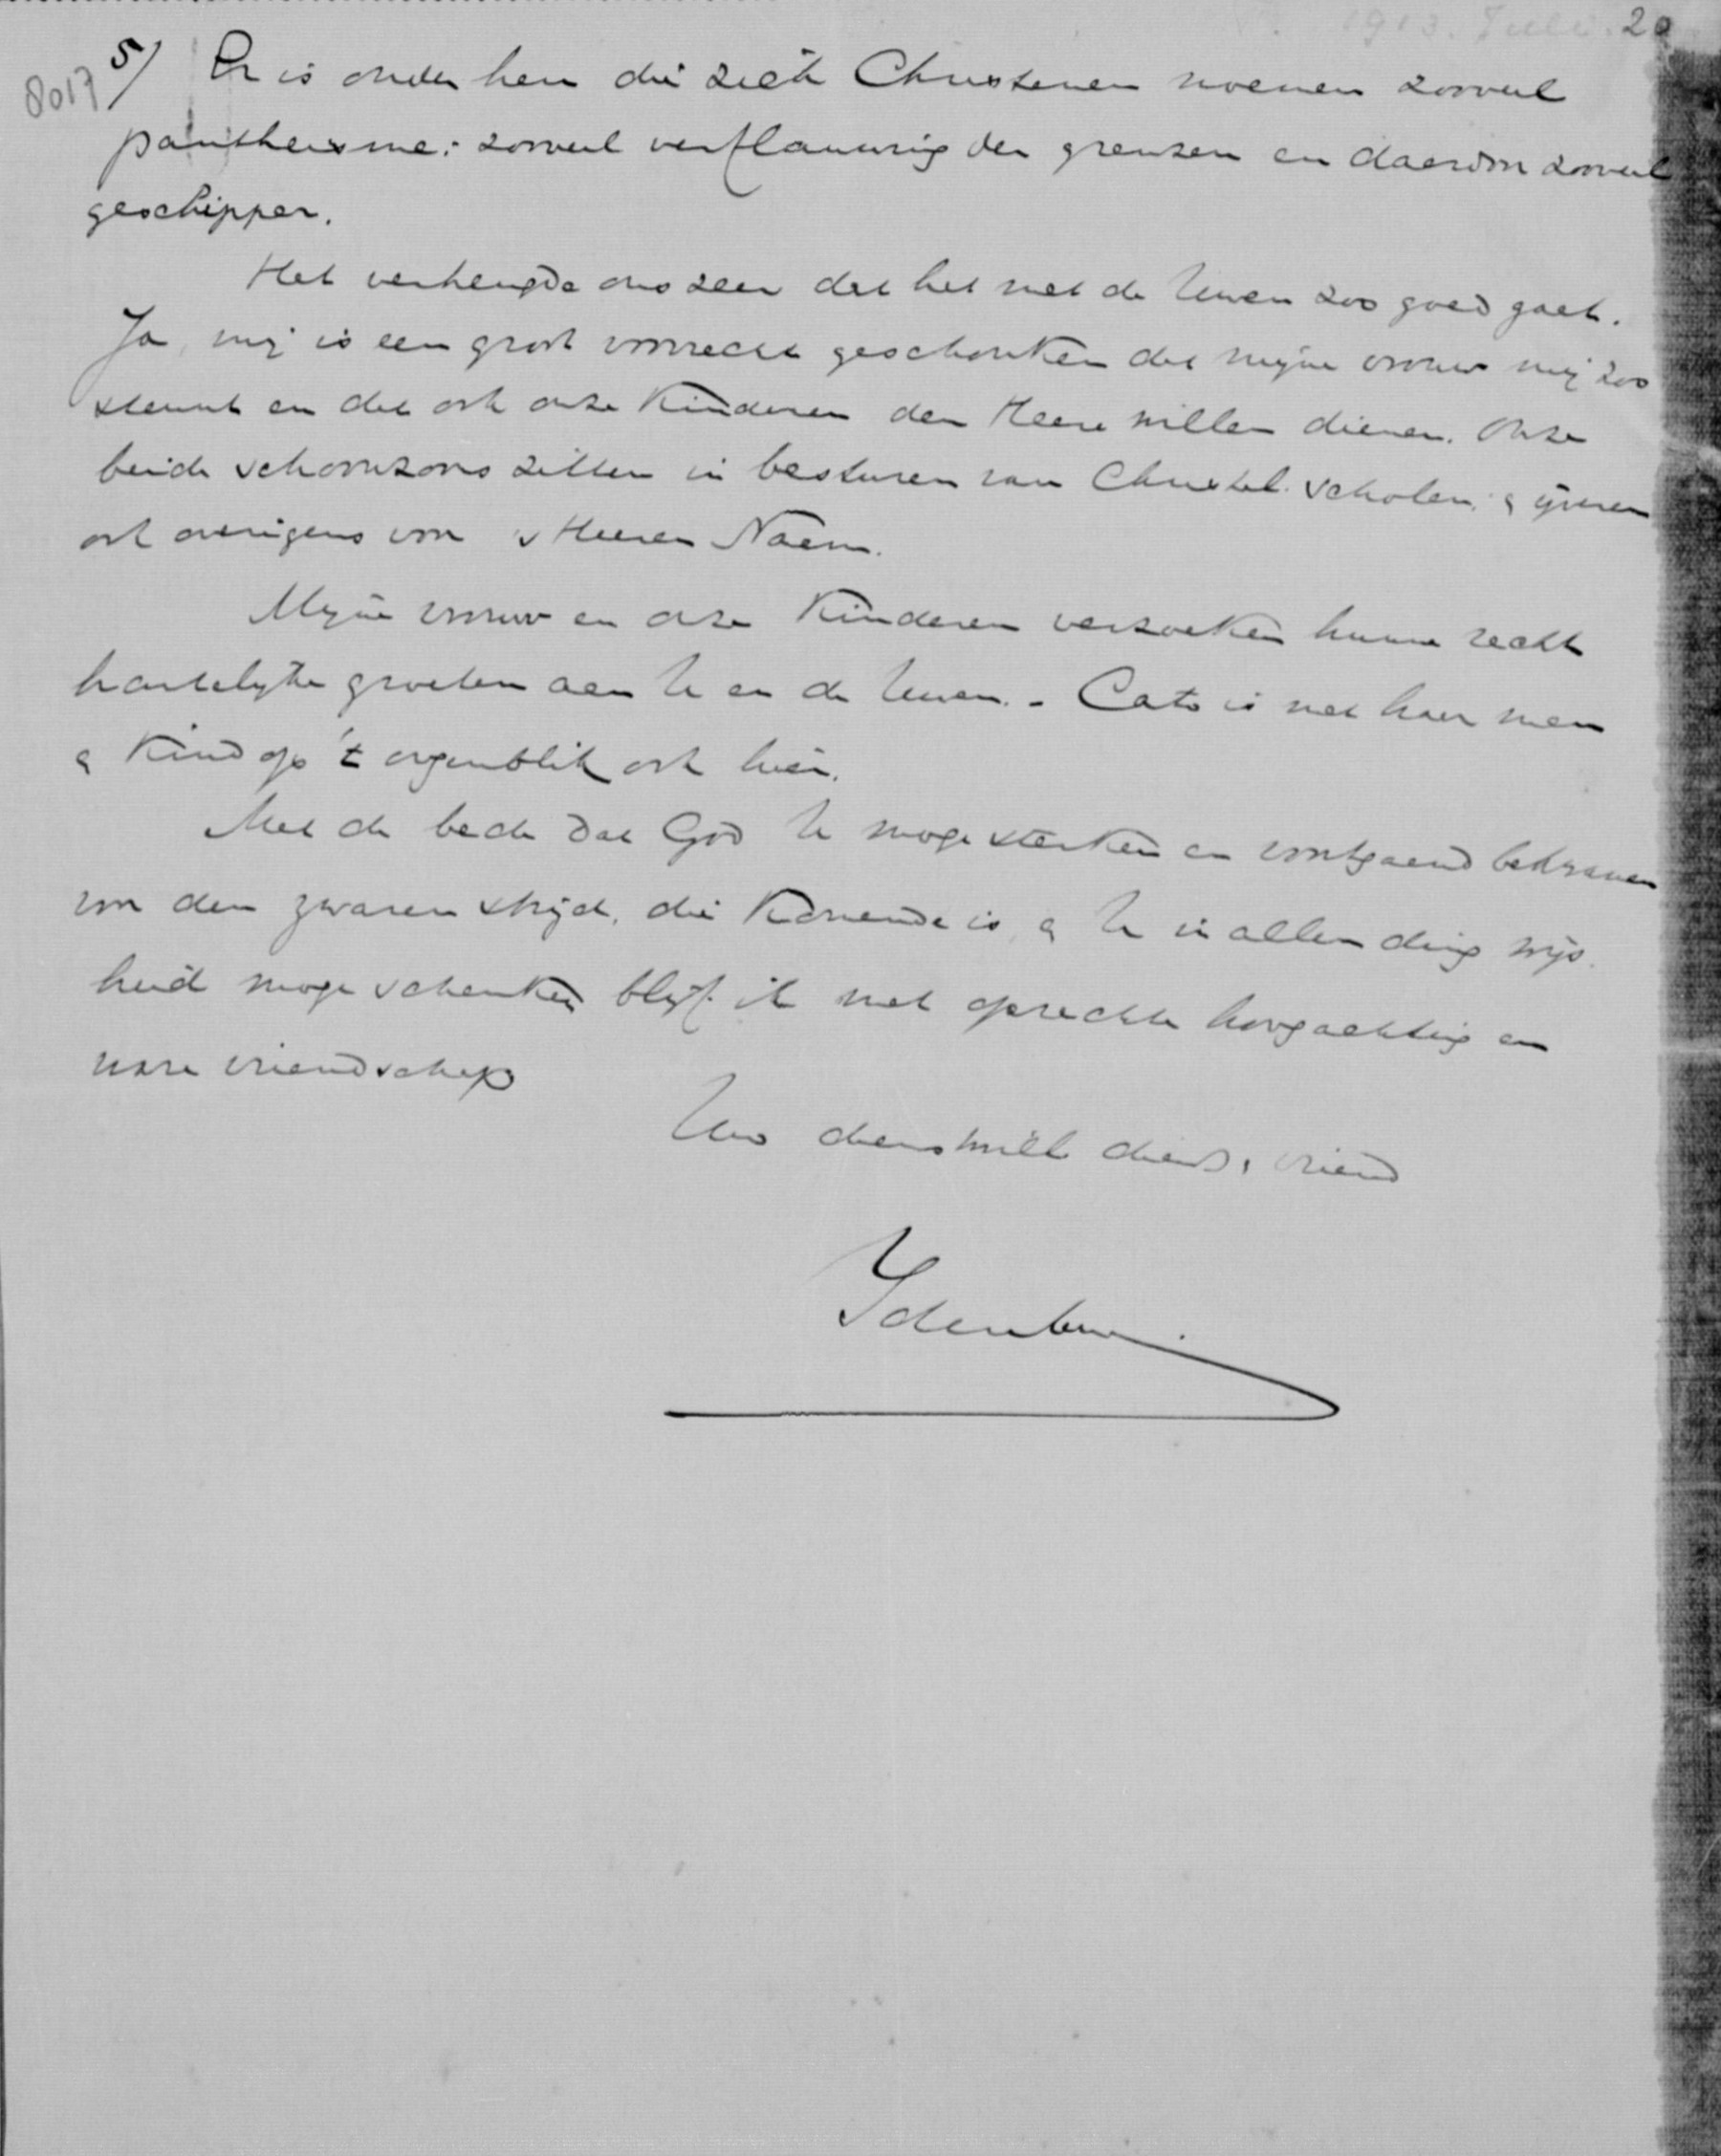 1913. Juli. 20
8017
5/ Er is onder hen die zich Christenen noemen zooveel
pantheisme: zooveel verflauwing der grenzen en daarom zooveel
geschipper.
Het verheugde ons zeer dat het met de Uwen zoo goed gaat.
Ja, mij is een groot voorrecht geschonken dat mijne vrouw mij zoo
steunt en dat ook onze kinderen den Heere willen dienen. Onze
beide schoonzoons zitten in besturen van Christel. scholen, & ijveren
ook overigens voor 's Heeren Naam.
Mijne vrouw en onze kinderen verzoeken hunne recht
hartelijke groeten aan U en de Uwen. - Cato is met haar man
& kind op 't oogenblik ook hier.
Met de bede dat God U moge sterken en voortgaand bekwamen
voor den zwaren strijd, die komende is, & U in allen ding wijs-
heid moge schenken blijf ik met oprechte hoogachting en
ware vriendschap
Uw dienstwill. dienr. & vriend
Idenburg